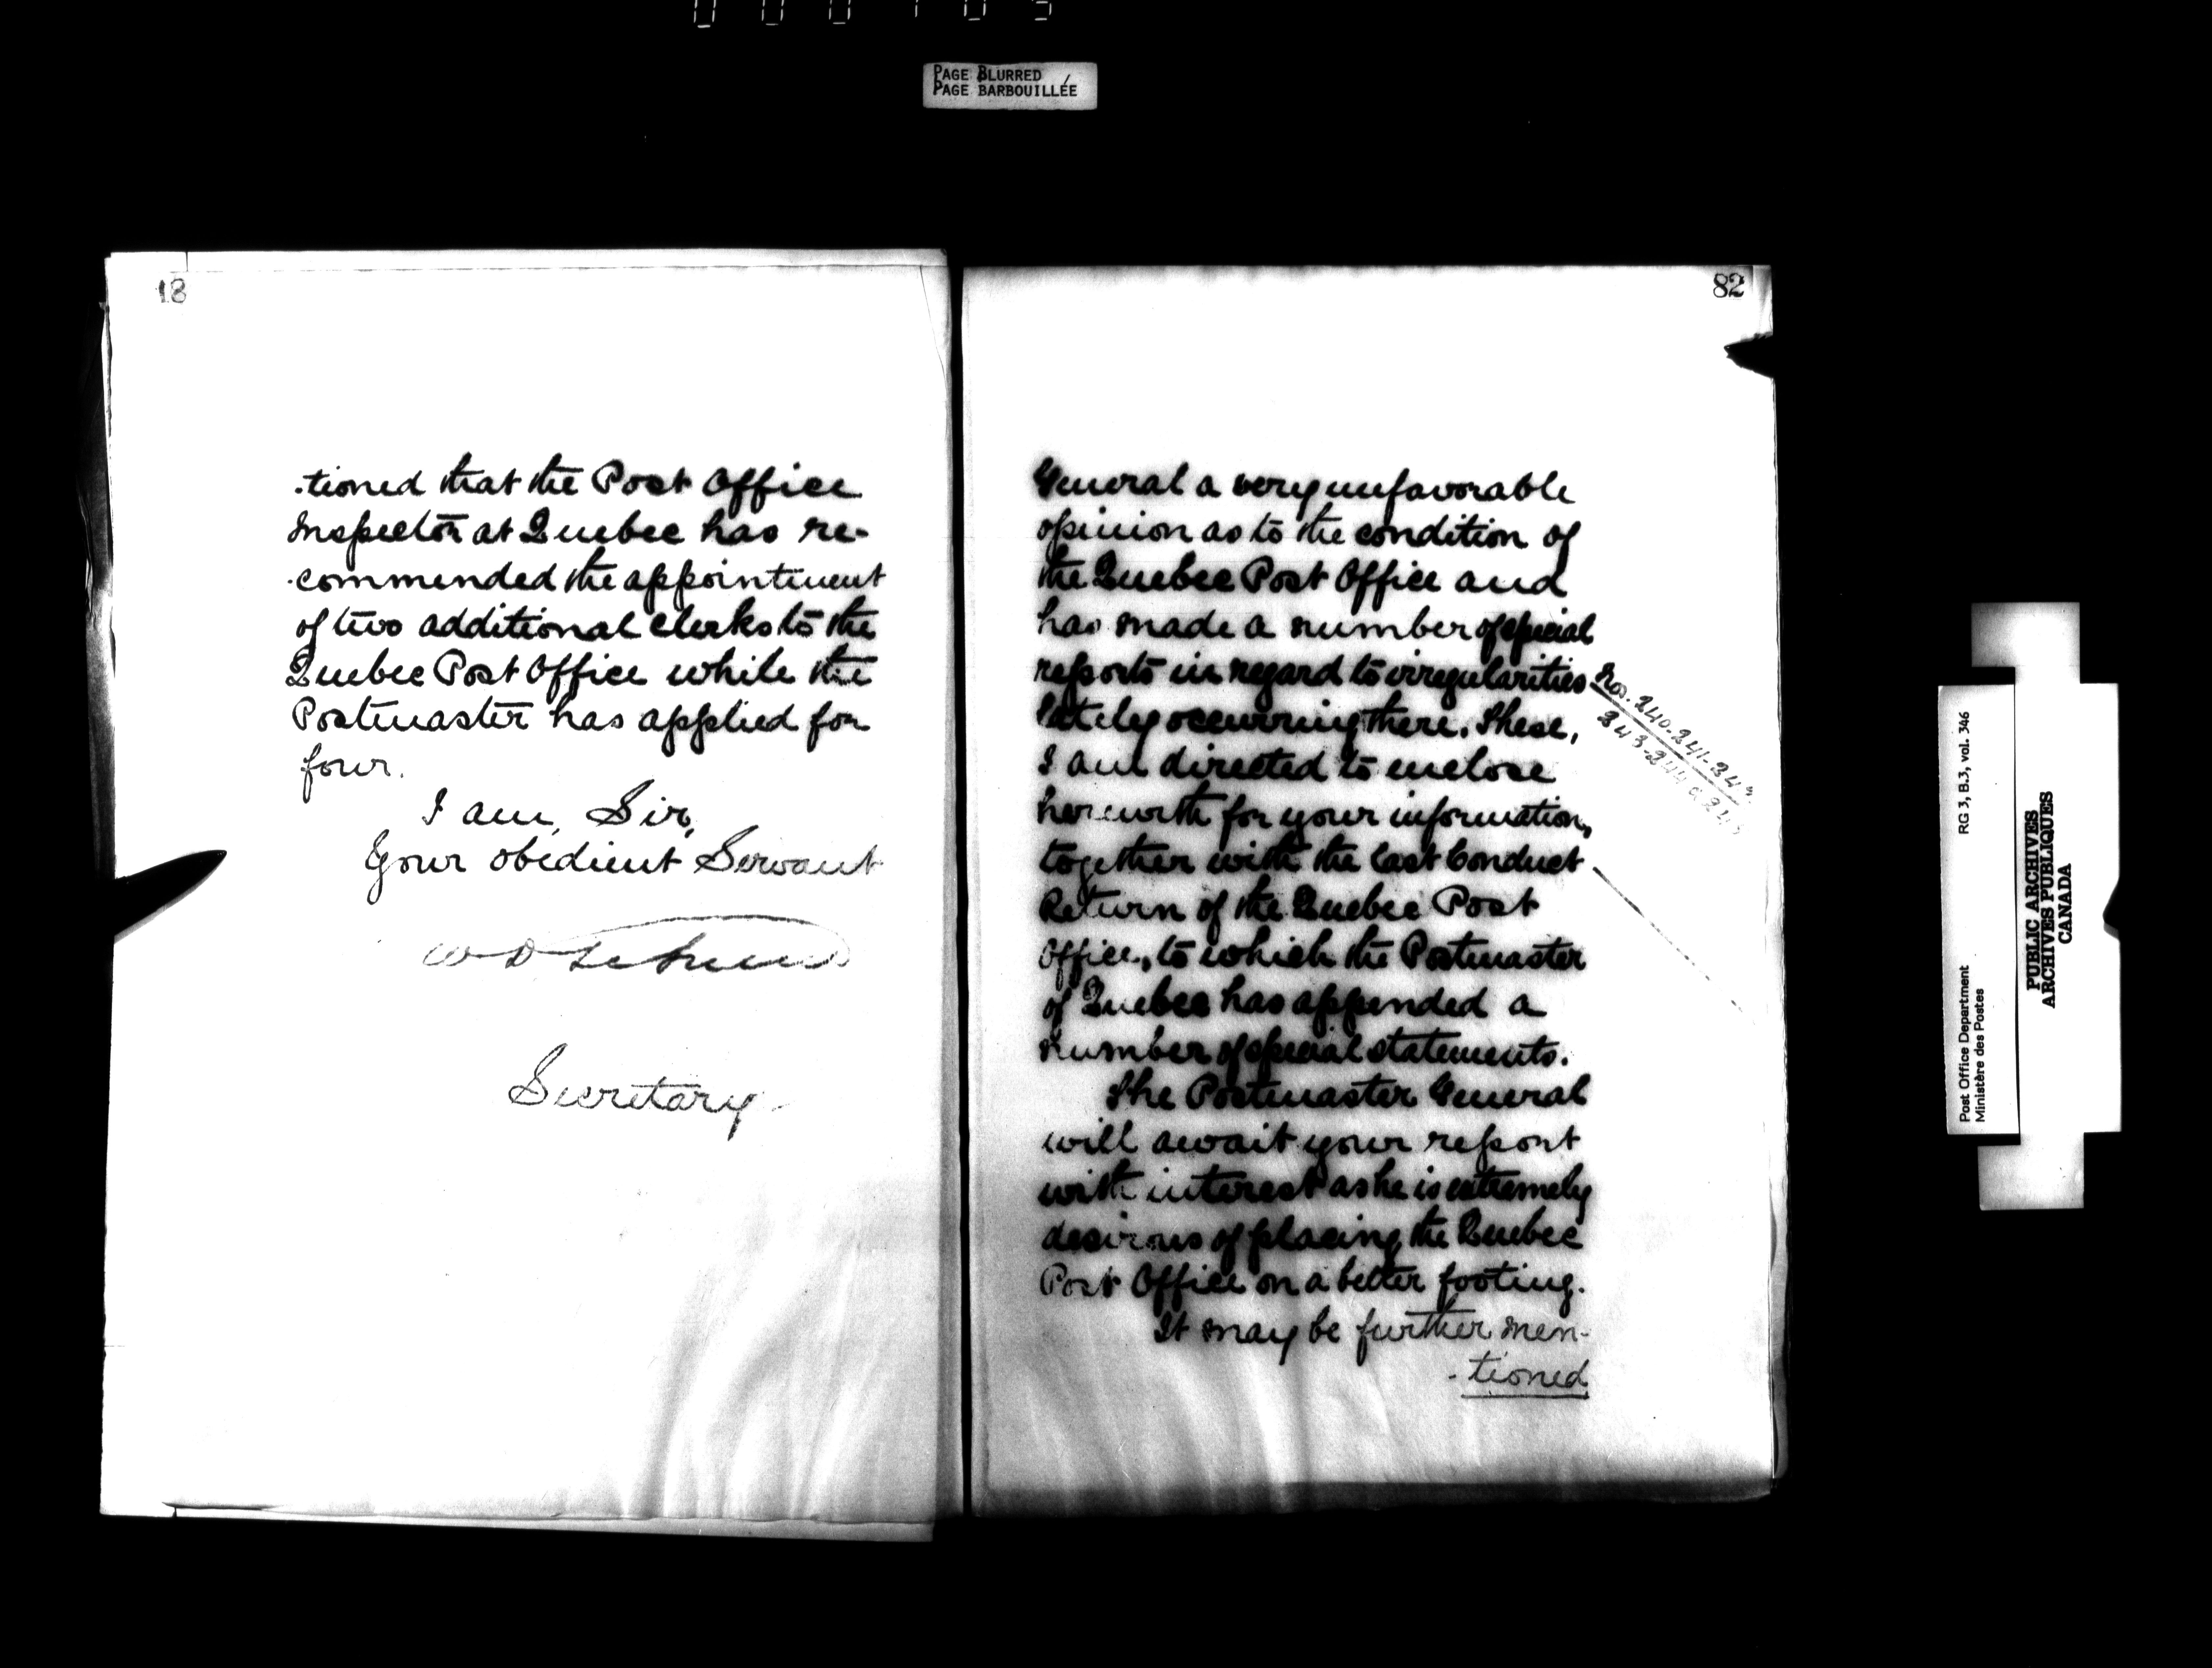 PAGE BLURRED
PAGE BARBOUILLÉE
18
.tioned that the Post Office
Inspector at Quebec has re-
.commended the appointment
of two additional clerks to the
Quebec Post Office while the
Postmaster has applied for
four.
I am, Sir,
Your obedient Servant
Secretary
82
General a very unfavorable
opinion as to the condition of
the Quebec Post Office and
has made a number of special
reports in regard to irregularities
lately occurring there. These,
I am directed to enclose
herewith for your information,
together with the last Conduct
Return of the Quebec Post
Office, to which the Postmaster
of Quebec has appended a
number of special statements.
The Postmaster General
will await your report
with interest as he is extremely
desirous of placing the Quebec
Post Office on a better footing.
It may be further men-
-tioned
Nos. 240-241-242
243-244
Post Office Department
Ministère des Postes
RG 3, B.3, vol. 346
PUBLIC ARCHIVES
ARCHIVES PUBLIQUES
CANADA